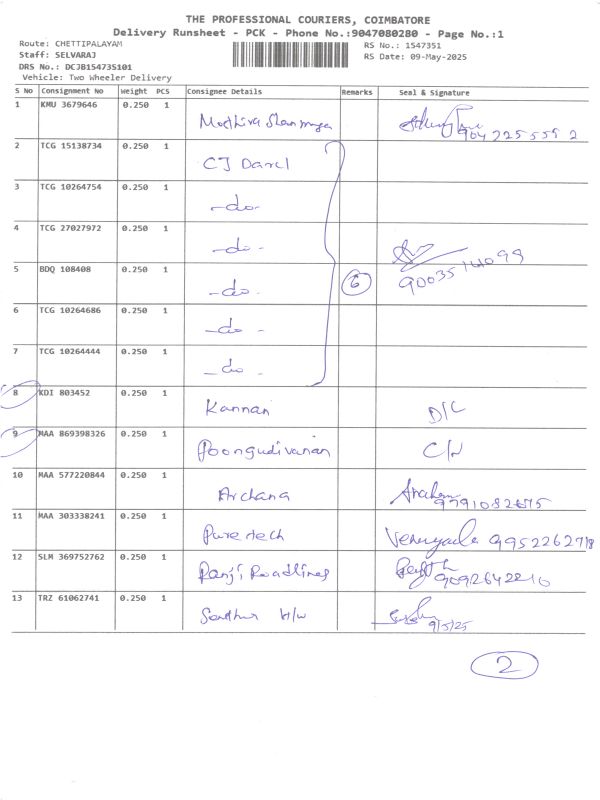 THE PROFESSIONAL COURIERS, COIMBATORE
Delivery Runsheet - PCK - Phone No.:9047080280 - Page No.:1
Route: CHETTIPALAYAM RS No.: 1547351
Staff: SELVARAJ RS Date: 09-May-2025
DRS No.: DCJB154735101
Vehicle: Two Wheeler Delivery
S No Consignment No Weight PCS Consignee Details Remarks Seal & Signature
1 KMU 3679646 0.250 1
2 TCG 15138734 0.250 1 CJ
3 TCG 10264754 0.250 1 -do-
4 TCG 27027972 0.250 1 -do-
9003514099
5 BDQ 108408 0.250 1 -do- 6
6 TCG 10264686 0.250 1 -do-
7 TCG 10264444 0.250 1 -do-
8 KDI 803452 0.250 1 Kannan D/C
9 MAA 869398326 0.250 1 Poongudivanan
10 MAA 577220844 0.250 1 Archana
11 MAA 303338241 0.250 1 Puretech 9952262718
12 SLM 369752762 0.250 1 Ranji Roadlines 9092642210
13 TRZ 61062741 0.250 1 H/W 9/5/25
2